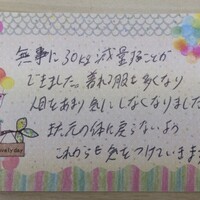 無事に30kg減量することが
できました。着れる服も多くなり
人目をあまり気にしなくなりました。
また元の体に戻らないよう
これからも気をつけていきます